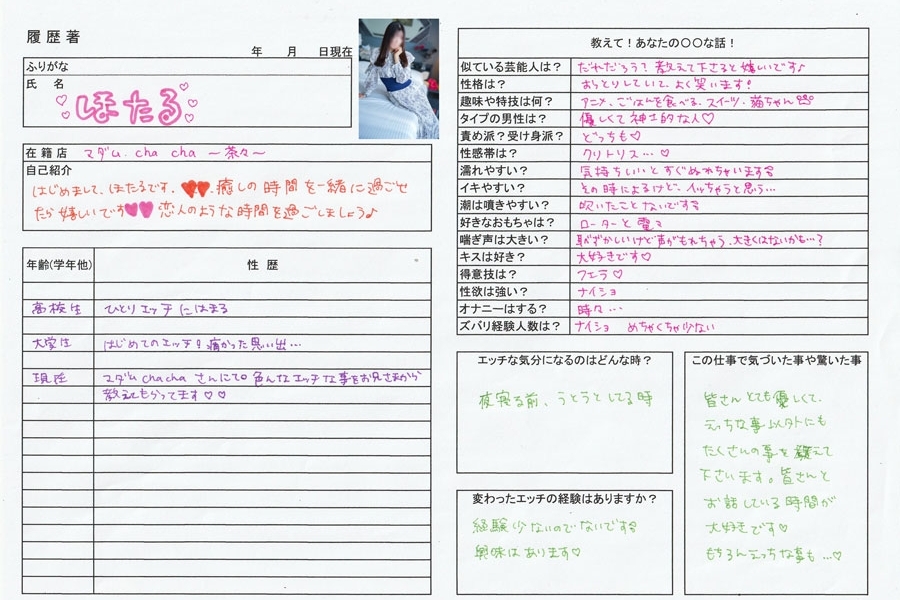 履歴著
年 月 日現在
ふりがな
氏 名
ほたる
在籍店 マダム cha cha ～茶々～
自己紹介
はじめまして、ほたるです。癒しの時間を一緒に過ごせ
たら嬉しいです 恋人のような時間を過ごしましょう♪
年齢(学年他) 性歴
大学生 はじめてのエッチ 痛かった思い出…
現在 マダムchachaさんにて。色んなエッチな事をお兄さまから
教えてもらってます♡♡
教えて！あなたの〇〇な話！
似ている芸能人は？ だれだろう？教えて下さると嬉しいです♪
性格は？ おっとりしていて、よく笑います！
趣味や特技は何？ アニメ、ごはんを食べる、スイーツ、猫ちゃん
タイプの男性は？ 優しくて紳士的な人♡
責め派？受け身派？ どっちも♡
性感帯は？ クリトリス…♡
濡れやすい？ 気持ちいいとすぐぬれちゃいます
イキやすい？ その時によるけど、イッちゃうと思う…
潮は噴きやすい？ 吹いたことないです
好きなおもちゃは？ ローターと電マ
喘ぎ声は大きい？ 恥ずかしいけど声がもれちゃう、大きくはないかも…？
キスは好き？ 大好きです♡
得意技は？ フェラ♡
性欲は強い？ ナイショ
オナニーはする？ 時々…
ズバリ経験人数は？ ナイショ めちゃくちゃ少ない
エッチな気分になるのはどんな時？
夜寝る前、うとうとしてる時
変わったエッチの経験はありますか？
経験少ないのでないです
興味はあります♡
この仕事で気づいた事や驚いた事
皆さんとても優しくて、
えっちな事以外にも
たくさんの事を教えて
下さいます。皆さんと
お話している時間が
大好きです♡
もちろんえっちな事も…♡